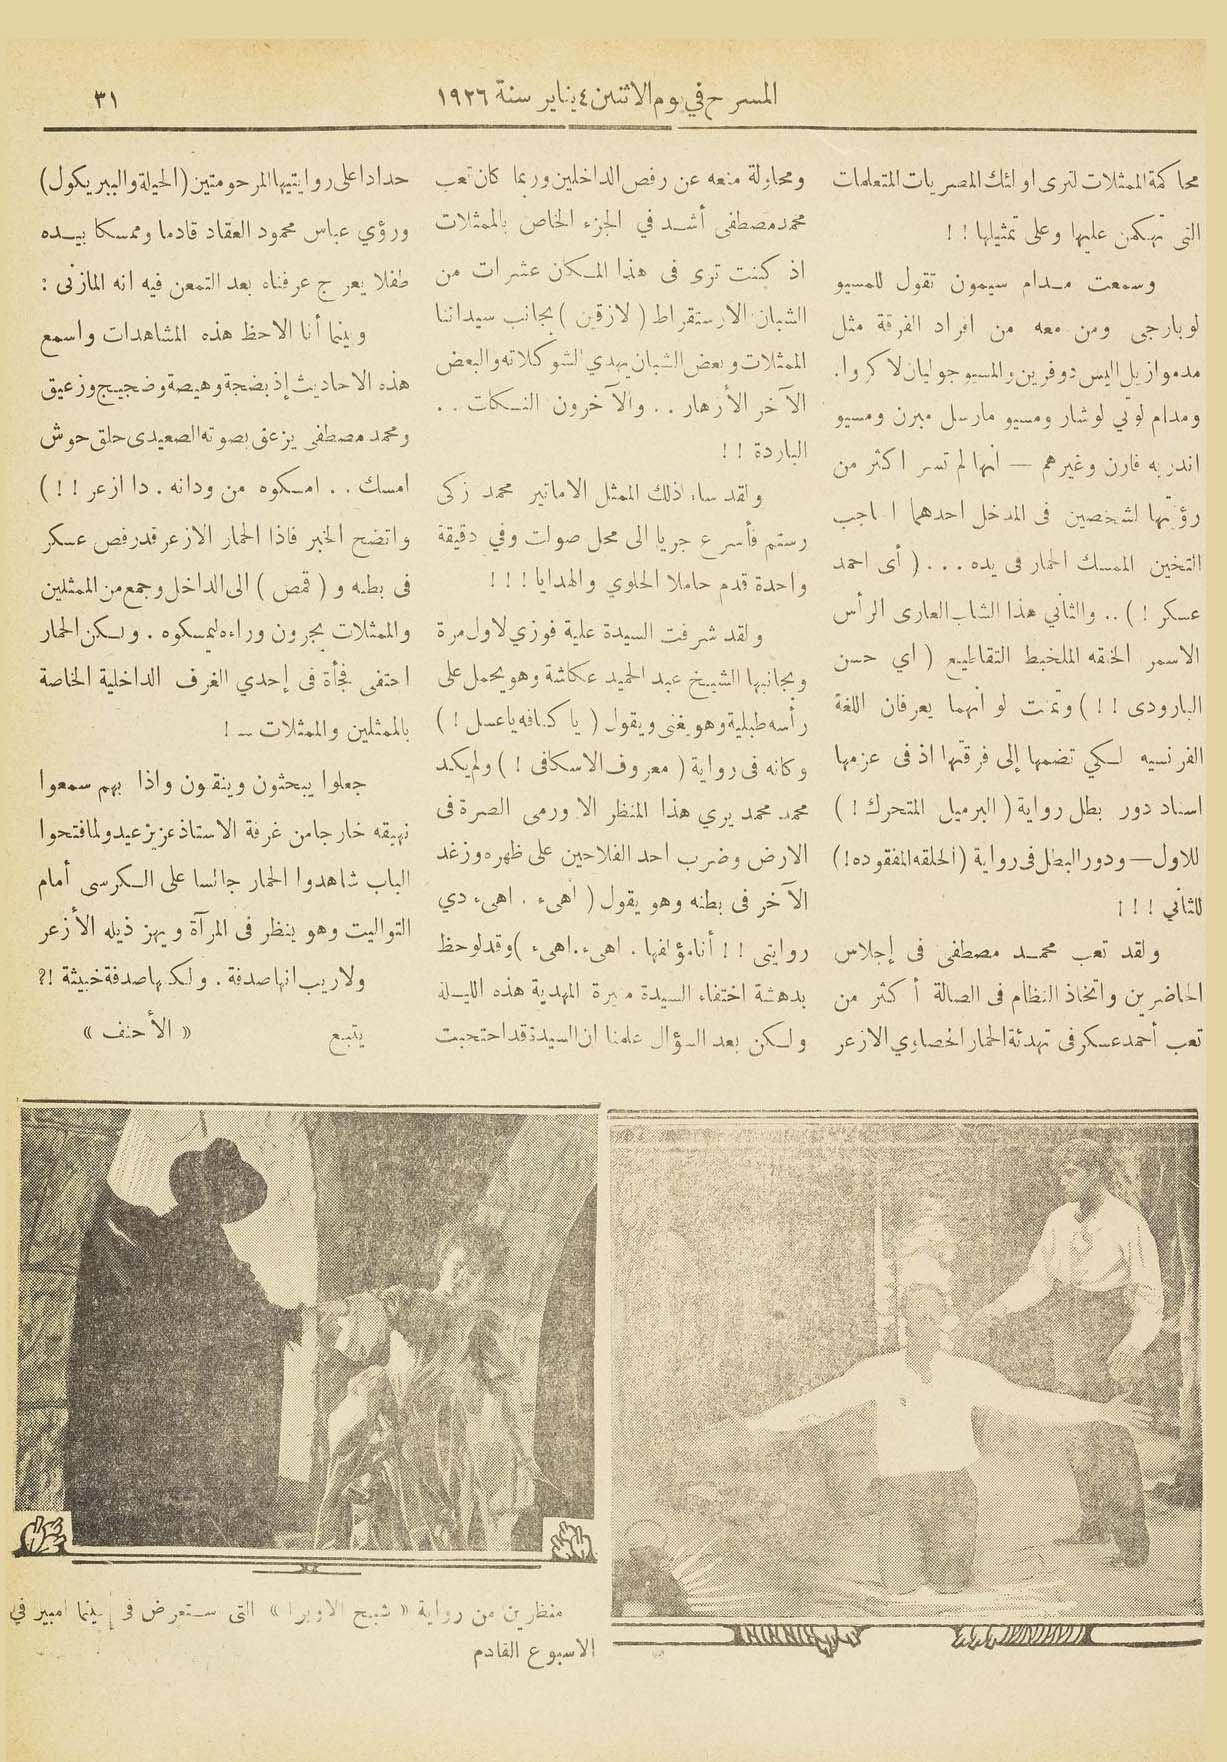 المسرح في يوم الاثنين ٤ يناير سنة ١٩٢٦
٣١
محاكمة الممثلات لترى اولئك المصريات المتعلمات
التى تهكمن عليها وعلى تمثيلها ! !
وسمعت مدام سيمون تقول للمسيو
لوبارجى ومن معه من افراد الفرقة مثل
مدموازيل اليس دوفرين والمسيو جوليان لاكروا.
ومدام لوتي لوشار ومسيو مارسل مبرن ومسيو
اندريه فارن وغيرهم — انها لم تسر اكثر من
رؤيتها لشخصين فى المدخل احدهما الحاجب
التخين الممسك الحمار فى يده . . . ( أى احمد
عسكر ! ) .. والثاني هذا الشاب العارى الرأس
الاسمر الخلقه الملخبط التقاطيع ( اي حسن
البارودى ! ! ) وتمنت لو انهما يعرفان اللغة
الفرنسيه لكي تضمها إلى فرقتها اذ فى عزمها
اسناد دور بطل رواية ( البرميل المتحرك ! )
للاول — ودور البطل فى رواية ( الحلقه المفقوده ! )
للثاني ! ! !
ولقد تعب محمد مصطفى فى إجلاس
الحاضرين واتخاذ النظام فى الصالة أكثر من
تعب أحمد عسكر فى تهدئة الحمار الحصاوي الازعر
ومحاولة منعه عن رفص الداخلين وربما كان تعب
محمد مصطفى أشد في الجزء الخاص بالممثلات
اذ كنت ترى فى هذا المكان عشرات من
الشبان الارستقراط ( لازقين ) بجانب سيداتنا
الممثلات وبعض الشبان يهدي الشوكلاته والبعض
الآخر الأزهار . . والآخرون النكات . .
الباردة ! !
ولقد ساء ذلك الممثل الاماتير محمد زكى
رستم فأسرع جريا الى محل صولت وفي دقيقة
واحدة قدم حاملا الحلوي والهدايا ! ! !
ولقد شرفت السيدة علية فوزي لاول مرة
وبجانبها الشيخ عبد الحميد عكاشة وهو يحمل على
رأسه طبلية وهو يغنى ويقول ( يا كنافه يا عسل ! )
وكانه فى رواية ( معروف الاسكافى ! ) ولم يكد
محمد محمد يري هذا المنظر الا ورمى الصرة فى
الارض وضرب احد الفلاحين على ظهره وزغد
الآخر فى بطنه وهو يقول ( اهىء . اهىء دي
روايتى ! ! أنا مؤلفها . اهىء . اهىء ) وقد لوحظ
بدهشة اختفاء السيدة منيرة المهدية هذه الليلة
ولكن بعد السؤال علمنا ان السيدة قد احتجبت
حدادا على روايتيها المرحومتين ( الحيلة والببر يكول )
ورؤي عباس محمود العقاد قادما وممسكا بيده
طفلا يعرج عرفناه بعد التمعن فيه انه المازنى :
وبينما أنا الاحظ هذه المشاهدات واسمع
هذه الاحاديث إذ بضجة وهيصة وضجيج وزعيق
ومحمد مصطفى يزعق بصوته الصعيدى حلق حوش
امسك . . امسكوه من ودانه . دا ازعر ! ! )
واتضح الخبر فاذا الحمار الازعر قد رفص عسكر
فى بطنه و ( قمص ) الى الداخل وجمع من الممثلين
والممثلات يجرون وراءه ليمسكوه . ولكن الحمار
اختفى فجأة فى إحدي الغرف الداخلية الخاصة
بالممثلين والممثلات ــ !
جعلوا يبحثون وينقبون واذا بهم سمعوا
نهيقه خارجا من غرفة الاستاذ عزيز عيد ولما فتحوا
الباب شاهدوا الحمار جالسا على الكرسى أمام
التواليت وهو ينظر فى المرآة ويهز ذيله الأزعر
ولا ريب انها صدفة . ولكنها صدفة خبيثة !؟
يتبع « الأحنف »
منظرين من رواية « شبح الاوبرا » التى ستعرض فى سينما امبير في
الاسبوع القادم